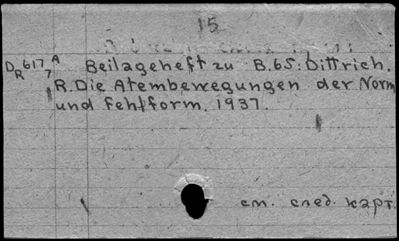 15
D R 617 A 7 Beilageheft zu B.65: Dittrich,
R. Die Atembewegungen der Norm
und Fehlform. 1937.
см. след. карт.